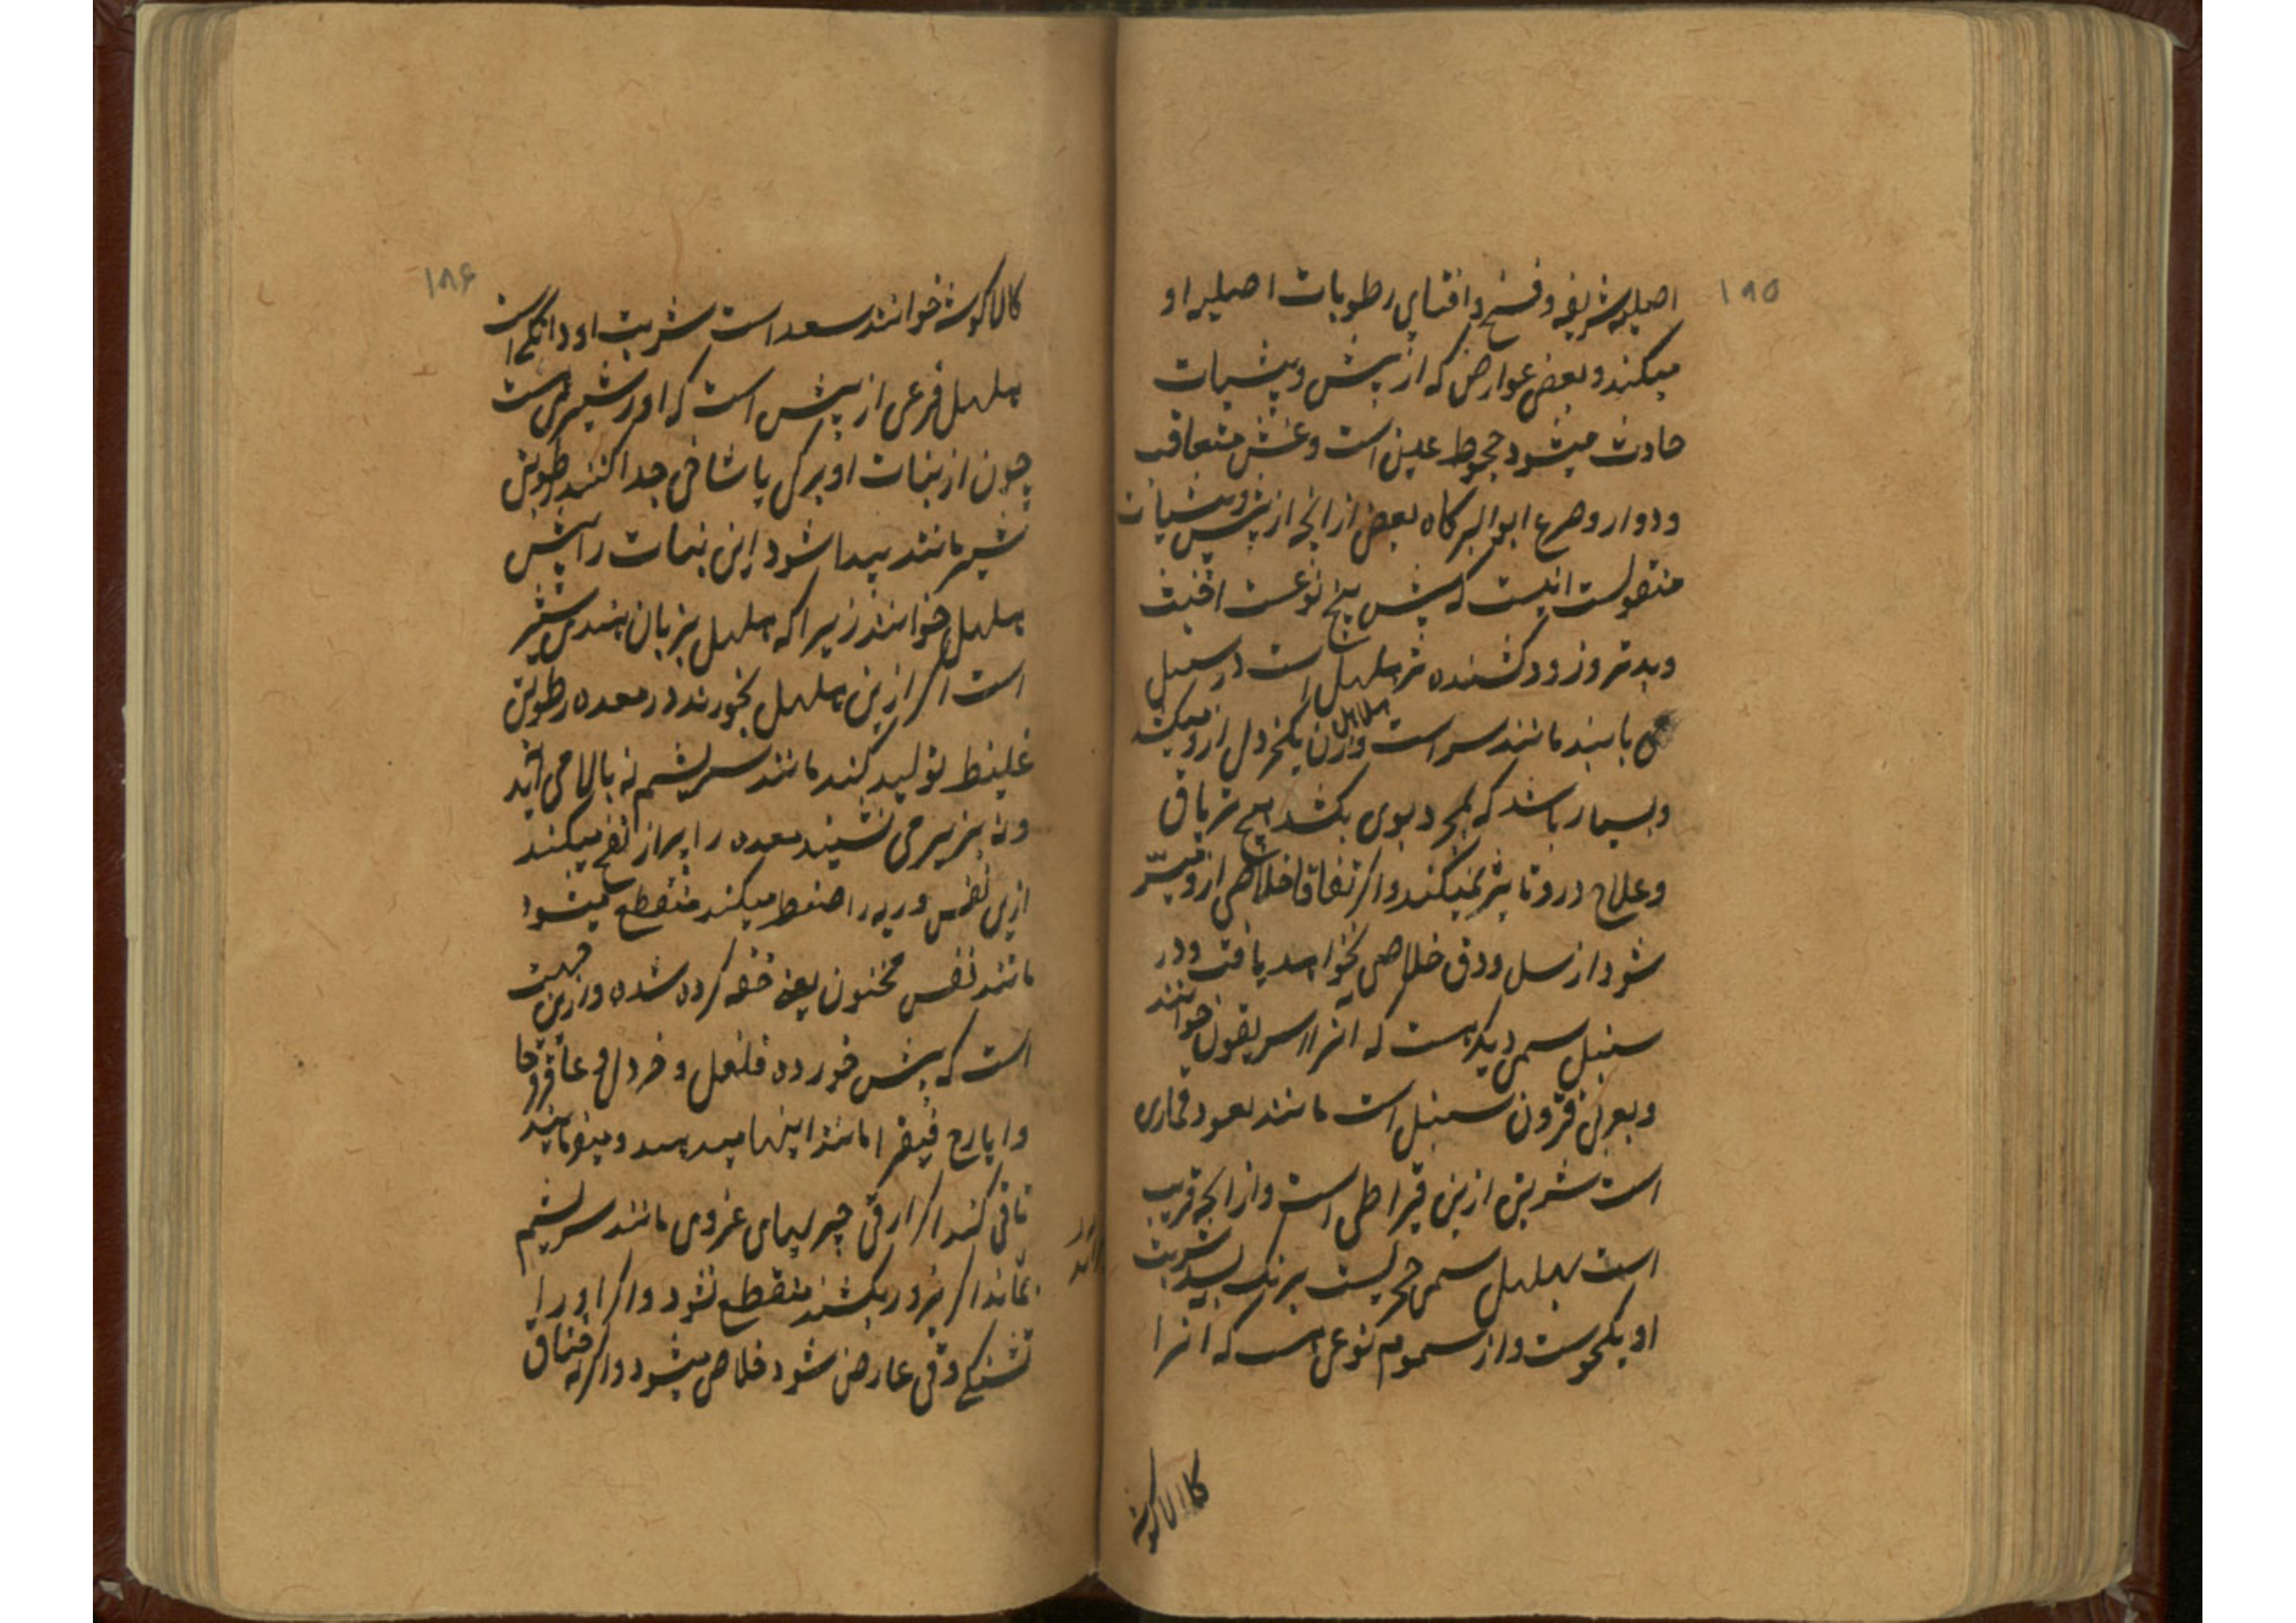 ۱۸۵
اصلیه شریفه و فسخ و افنای رطوبات اصلیه او
میکند و بعض عوارض که از بیش و بیشیات
حادث میشود جحوظ عین است و غشی متعاقب
و دوار و صرع ابوالبرکات بعض از انچه از بیش و بیشیات
منقولست اینست که بیش پنج نوعست اخبث
و بدتر و زود کشنده تر هلهل است در سنبل
می یابند مانند سر است وازن یکخردل ازو میکشد
هلاهل را
و بسیار باشد که بمجرد بوی بکشد هیچ تریاق
و علاج درو تاثیر نمیکند و اگر اتفاقا خلاصی ازو میسر
شود از سل و دق خلاصی نخواهد یافت و در
سنبل سمی دیگر هست که انرا اسریقون خوانند
و بعربی قرون سنبل است مانند بعود قماری
است شربتی ازین قیراطی است و از انجه قریب
است بهلهل سمی حجریست برنگ بسد شربت
او یکجوست و از سموم نوعی است که انرا
کالاکوشه
۱۸۶
کالاکوشه خوانند سعد است شربت او دانگی است
هلهل فرعی از بیش است که او را شیری است
چون از نبات او برگی یا شاخی جدا کنند رطوبتی
شیر مانند پیدا شود این نبات را بیش
هلهل خوانند زیرا که هلهل بزبان هندی شیر
است اگر ازین هلهل بخورند در معده رطوبتی
غلیظ تولید کند مانند سریشم نه بالا می آید
و نه بزیر می نشیند معده را پر از نفخ میکند
ازین نفس و ریه را ضغط میکند منقطع میشود
مانند نفس مخنوق یعنی خفه کرده شده و ازین جهت
است که بیش خورده فلفل و خردل و عاقرقرحا
و ایارج فیقرا مانند اینها میدهند و میفرمایند
تا قی کند اگر از قی چیزهای غروی مانند سریشم
براید
بماند اگر بزور بکشند منقطع نشود و اگر او را
تشنگی و قی عارض شود خلاص میشود و اگرنه خناق